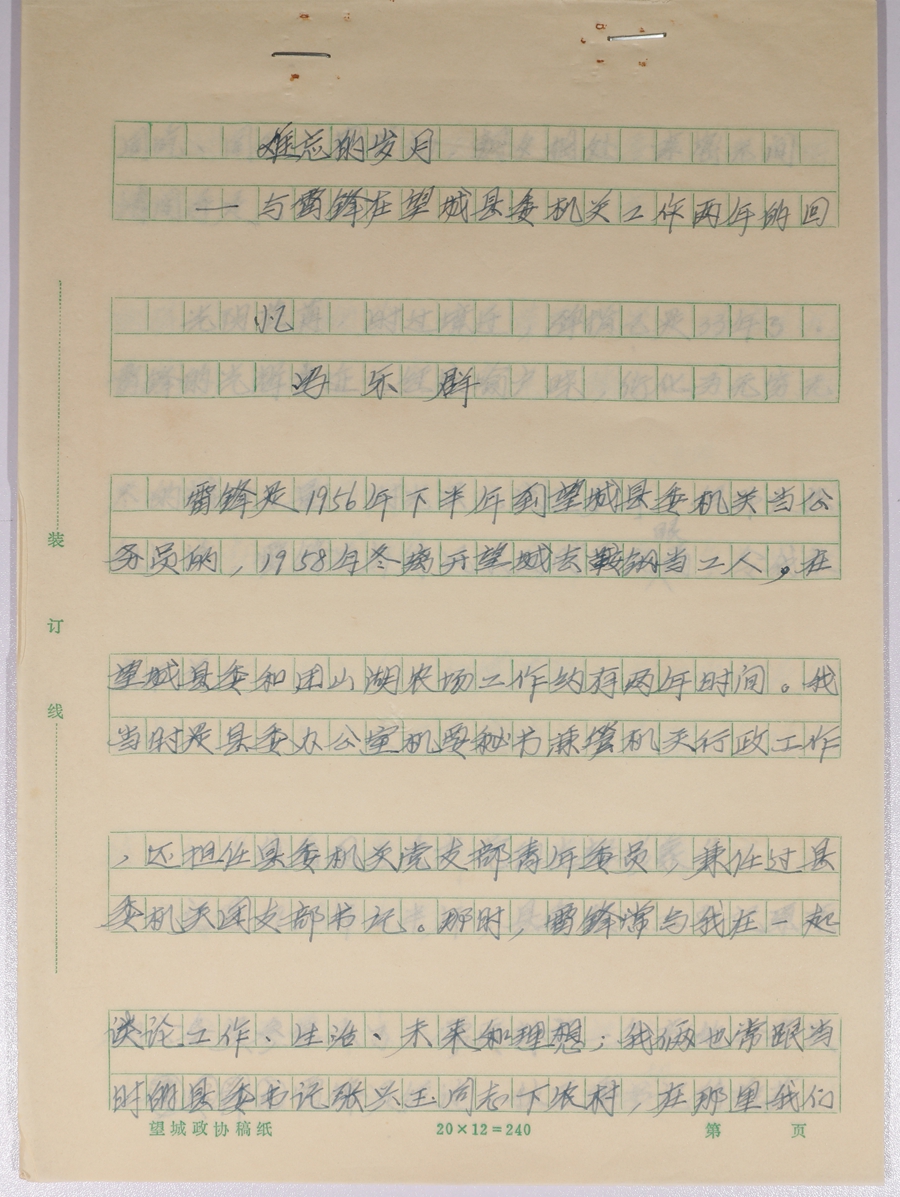 难忘的岁月
—与雷锋在望城县委机关工作两年的回
忆
冯乐群
雷锋是1956年下半年到望城县委机关当公
务员的，1958年冬离开望城去鞍钢当工人。在
望城县委和团山湖农场工作约有两年时间。我
当时是县委办公室机要秘书兼管机关行政工作
，还担任县委机关党支部青年委员，兼任过县
委机关团支部书记。那时，雷锋常与我在一起
谈论工作、生活、未来和理想；我俩也常跟当
时的县委书记张兴玉同志下农村，在那里我们
装订线
望城政协稿纸 20×12=240 第 页